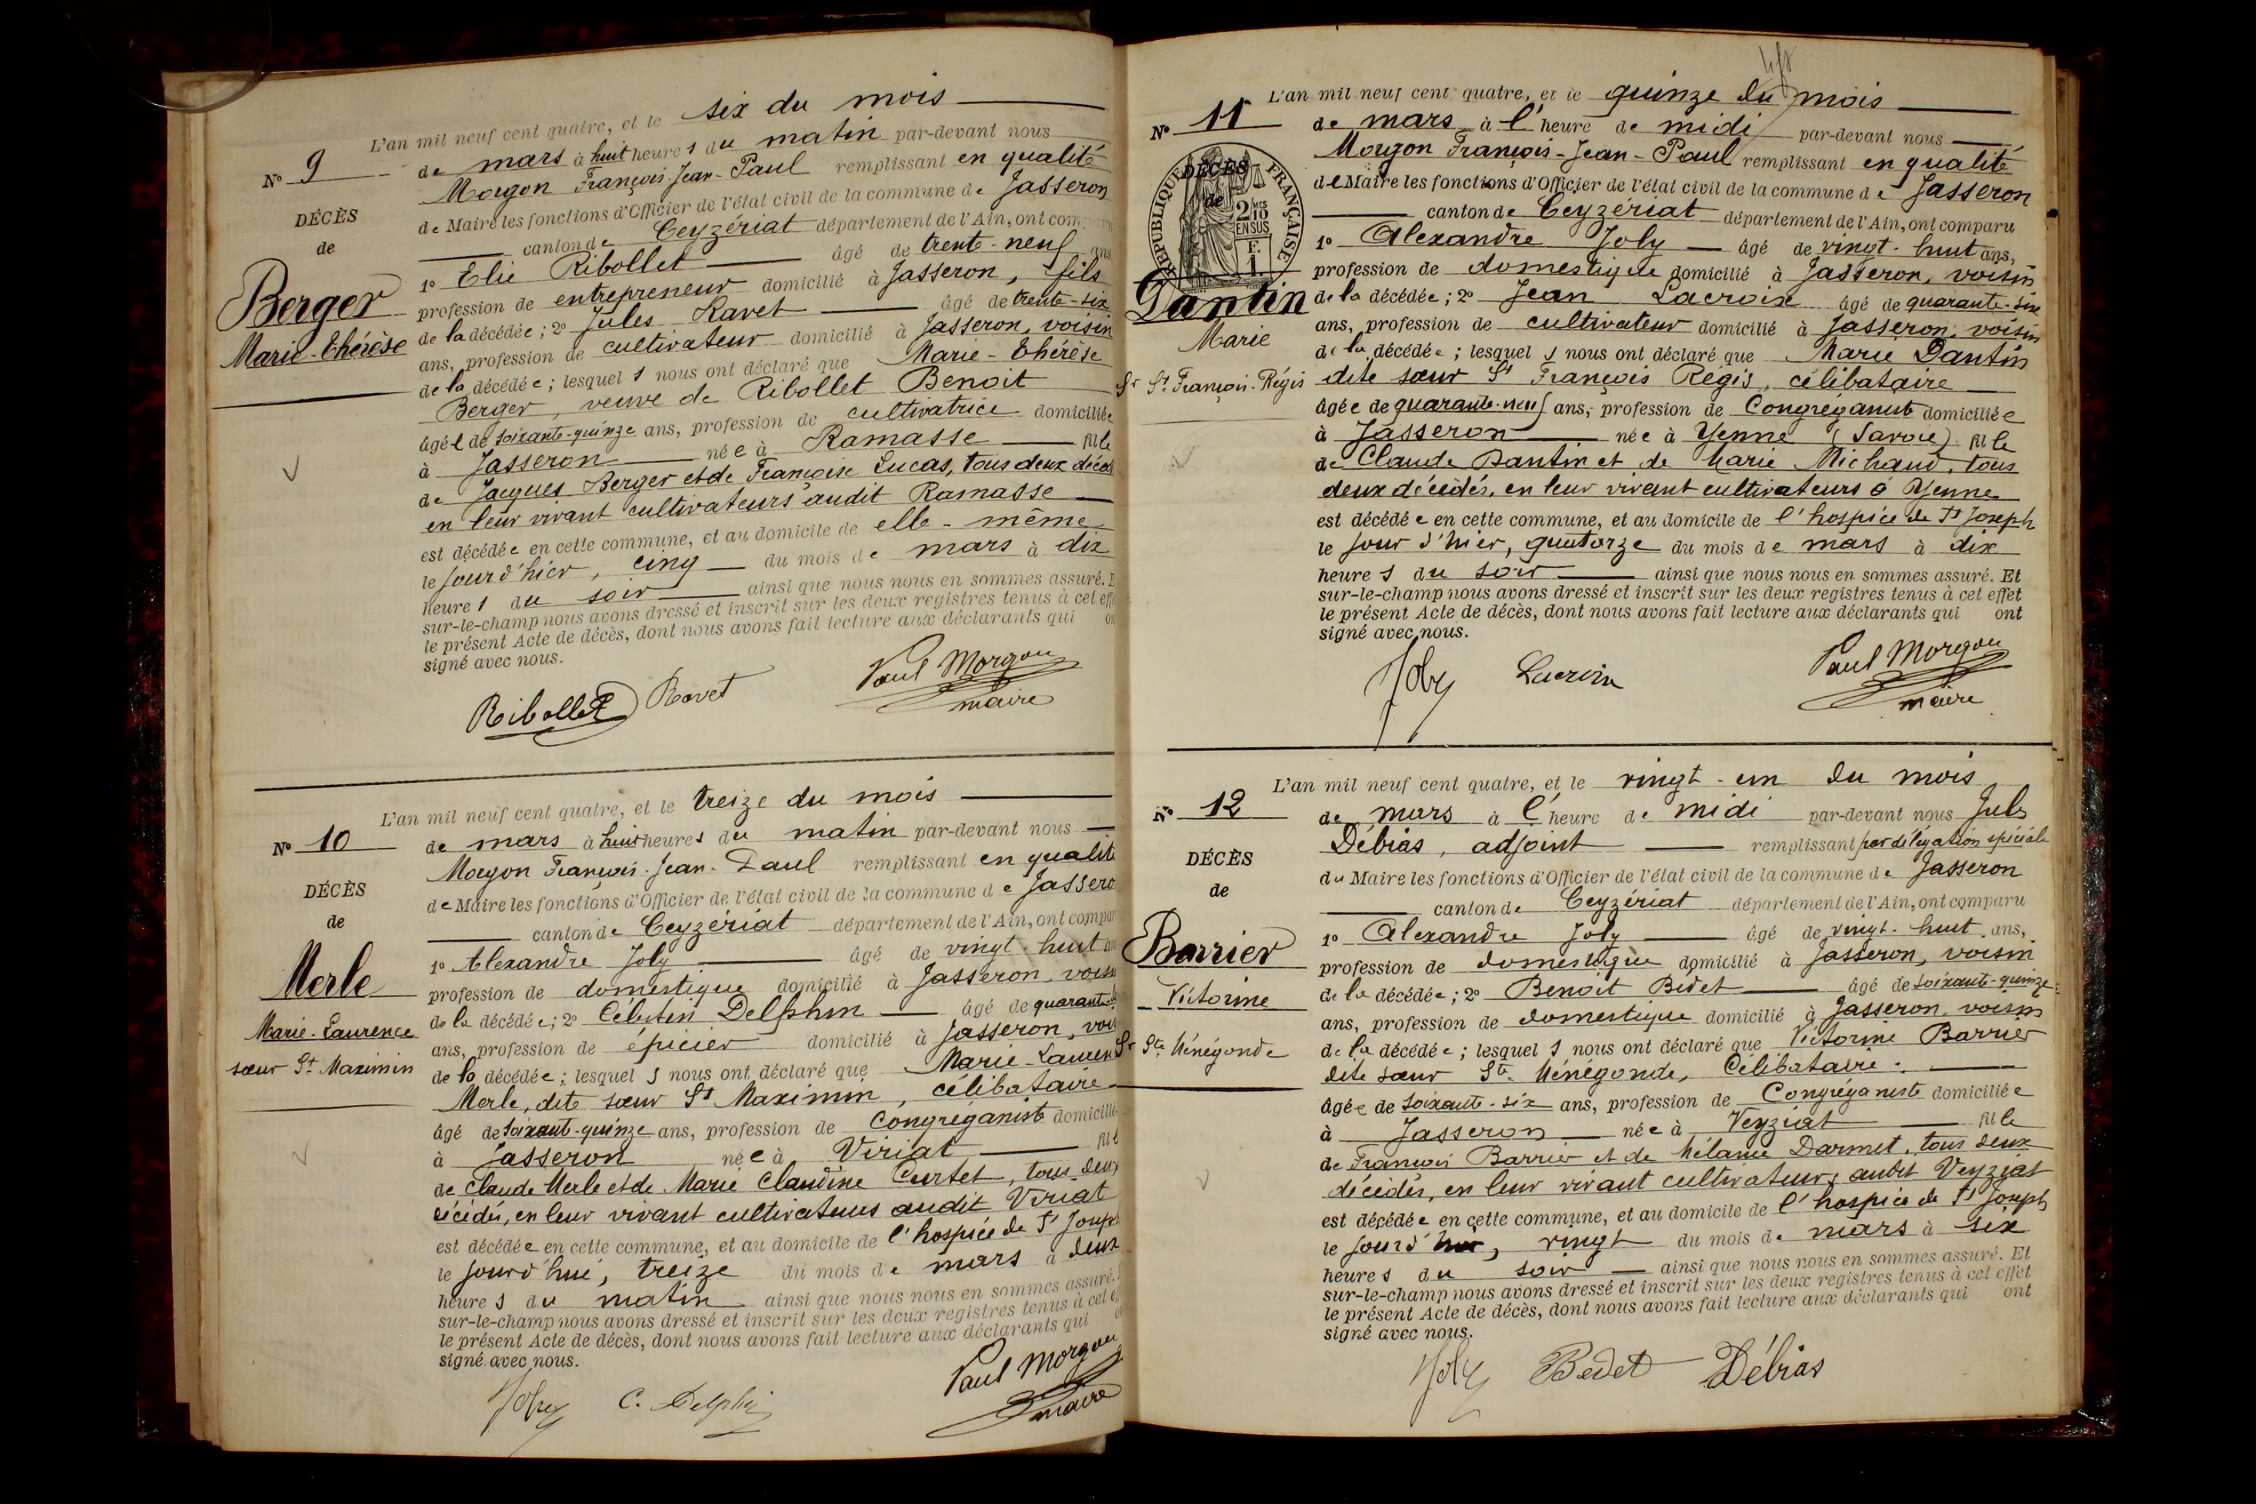 L'an mil neuf cent quatre, et le six du mois
N° 9
de mars à huit heures du matin par-devant nous
Morgon François-Jean-Paul remplissant en qualité
de Maire les fonctions d'Officier de l'état civil de la commune de Jasseron
canton de Ceyzériat département de l'Ain, ont comparu
DÉCÈS
de
Berger
Marie-Thérèse
1° Elie Ribollet âgé de trente-neuf ans
profession de entrepreneur domicilié à Jasseron, fils
de la décédée; 2° Jules Ravet âgé de trente-six
ans, profession de cultivateur domicilié à Jasseron, voisin
de la décédée; lesquels nous ont déclaré que Marie-Thérèse
Berger, veuve de Ribollet Benoit
âgée de soixante-quinze ans, profession de cultivatrice domiciliée
à Jasseron née à Ramasse fille
de Jacques Berger et de Françoise Lucas, tous deux décéd
en leur vivant cultivateurs audit Ramasse
est décédée en cette commune, et au domicile de elle-même
le jour d'hier, cinq du mois de mars à dix
heures du soir ainsi que nous nous en sommes assuré. E
sur-le-champ nous avons dressé et inscrit sur les deux registres tenus à cet effe
le présent Acte de décès, dont nous avons fait lecture aux déclarants qui on
signé avec nous.
Ribollet Ravet Paul Morgon
maire
L'an mil neuf cent quatre, et le treize du mois
N° 10
de mars à huit heures du matin par-devant nous
Morgon François-Jean-Paul remplissant en qualité
de Maire les fonctions d'Officier de l'état civil de la commune de Jassero
canton de Ceyzériat département de l'Ain, ont compar
DÉCÈS
de
Merle
Marie-Laurence
sœur St Maximin
1° Alexandre Joly âgé de vingt-huit an
profession de domestique domicilié à Jasseron, voisin
de la décédée; 2° Célestin Delphin âgé de quarante
ans, profession de épicier domicilié à Jasseron, vois
de la décédée; lesquels nous ont déclaré que Marie-Lauren
Merle, dite sœur St Maximin, célibataire
âgé de soixante-quinze ans, profession de Congréganiste domicilié
à Jasseron née à Viriat fille
de Claude Merle et de Marie Claudine Curtet, tous deux
décédés, en leur vivant cultivateurs audit Viriat
est décédée en cette commune, et au domicile de l'hospice de St Joseph
le jourd'hui, treize du mois de mars à deux
heures du matin ainsi que nous nous en sommes assuré.
sur-le-champ nous avons dressé et inscrit sur les deux registres tenus à cet e
le présent Acte de décès, dont nous avons fait lecture aux déclarants qui
signé avec nous.
Joly C. Delphin Paul Morgon
maire
L'an mil neuf cent quatre, et le quinze du mois
N° 11
de mars à l'heure de midi par-devant nous
Morgon François-Jean-Paul remplissant en qualité
de Maire les fonctions d'Officier de l'état civil de la commune de Jasseron
canton de Ceyzériat département de l'Ain, ont comparu
DÉCÈS
de
RÉPUBLIQUE FRANÇAISE
2/10 MES
EN SUS
F.
1.
Dantin
Marie
Sr St François-Régis
1° Alexandre Joly âgé de vingt-huit ans,
profession de domestique domicilié à Jasseron, voisin
de la décédée; 2° Jean Lacroix âgé de quarante-six
ans, profession de cultivateur domicilié à Jasseron, voisin
de la décédée; lesquels nous ont déclaré que Marie Dantin
dite sœur St François Régis, célibataire
âgée de quarante-neuf ans, profession de Congréganiste domiciliée
à Jasseron née à Yenne (Savoie) fille
de Claude Dantin et de Marie Michaud, tous
deux décédés, en leur vivant cultivateurs à Yenne
est décédée en cette commune, et au domicile de l'hospice de St Joseph
le jour d'hier, quatorze du mois de mars à dix
heures du soir ainsi que nous nous en sommes assuré. Et
sur-le-champ nous avons dressé et inscrit sur les deux registres tenus à cet effet
le présent Acte de décès, dont nous avons fait lecture aux déclarants qui ont
signé avec nous.
Joly Lacroix Paul Morgon
maire
L'an mil neuf cent quatre, et le vingt-un du mois
N° 12
de mars à l'heure de midi par-devant nous Jules
Débias, adjoint remplissant par délégation spéciale
du Maire les fonctions d'Officier de l'état civil de la commune de Jasseron
canton de Ceyzériat département de l'Ain, ont comparu
DÉCÈS
de
Barrier
Victorine
Sr Ste Ménégonde
1° Alexandre Joly âgé de vingt-huit ans,
profession de domestique domicilié à Jasseron, voisin
de la décédée; 2° Benoit Bedet âgé de soixante-quinze
ans, profession de domestique domicilié à Jasseron, voisin
de la décédée; lesquels nous ont déclaré que Victorine Barrier
dite sœur Ste Ménégonde, Célibataire.
âgée de soixante-six ans, profession de Congréganiste domiciliée
à Jasseron née à Veyziat fille
de François Barrier et de Mélanie Darmet, tous deux
décédés, en leur vivant cultivateurs audit Veyziat
est décédée en cette commune, et au domicile de l'hospice de St Joseph
le jour d'hier, vingt du mois de mars à six
heures du soir ainsi que nous nous en sommes assuré. Et
sur-le-champ nous avons dressé et inscrit sur les deux registres tenus à cet effet
le présent Acte de décès, dont nous avons fait lecture aux déclarants qui ont
signé avec nous.
Joly Bedet Débias